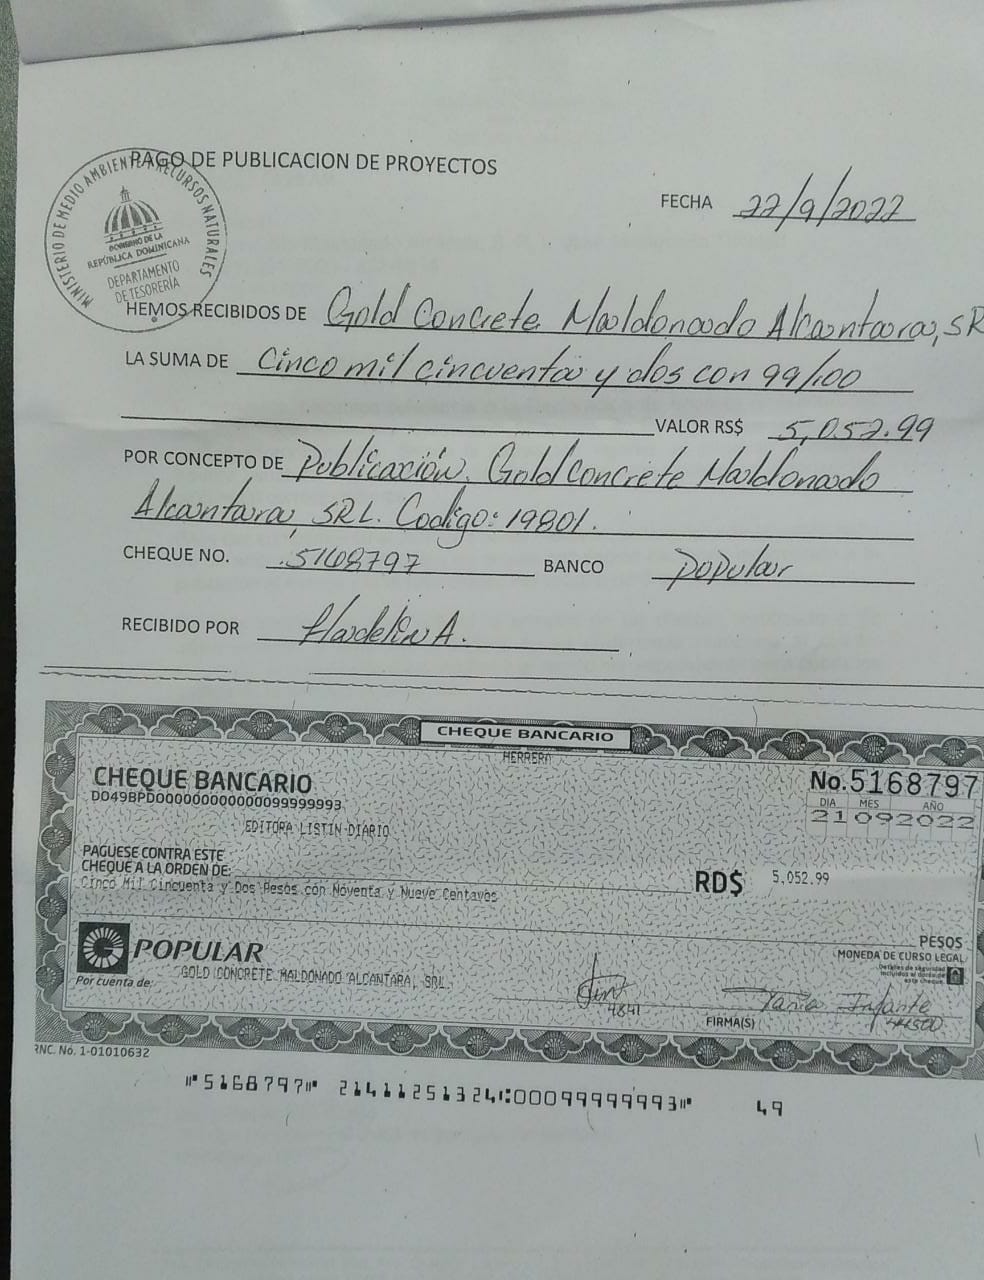 PAGO DE PUBLICACION DE PROYECTOS
MINISTERIO DE MEDIO AMBIENTE Y RECURSOS NATURALES
GOBIERNO DE LA
REPÚBLICA DOMINICANA
DEPARTAMENTO
DE TESORERÍA
FECHA 22/9/2022
HEMOS RECIBIDOS DE Gold Concrete Maldonado Alcantara, SR
LA SUMA DE Cinco mil cincuenta y dos con 99/100
VALOR RS$ 5,052.99
POR CONCEPTO DE Publicación. Gold Concrete Maldonado
Alcantara, SRL. Codigo: 19801.
CHEQUE NO. 5168797 BANCO Popular
RECIBIDO POR A.
CHEQUE BANCARIO
HERRERA
CHEQUE BANCARIO
No. 5168797
DO49BPD00000000000099999993
DIA MES AÑO
21 09 2022
EDITORA LISTIN DIARIO
PAGUESE CONTRA ESTE
CHEQUE A LA ORDEN DE:
RD$ 5,052.99
Cinco Mil Cincuenta y Dos Pesos con Noventa y Nueve Centavos
PESOS
MONEDA DE CURSO LEGAL
Detalles de seguridad
incluidos al dorso de
este cheque
POPULAR
GOLD CONCRETE MALDONADO ALCANTARA, SRL.
Por cuenta de:
4841
Tania Infante
44500
FIRMA(S)
RNC. No. 1-01010632
5168797 214112513 24 00099999993 49